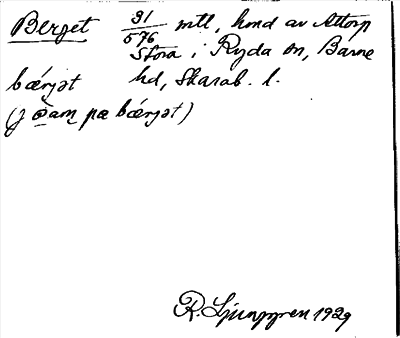 Berget 31/576 mtl, hmd av Attorp
Stora i Ryda sn, Barne
bærjət hd, Skarab. l.
(j øam pæ bærjət)
R. Ljunggren 1929